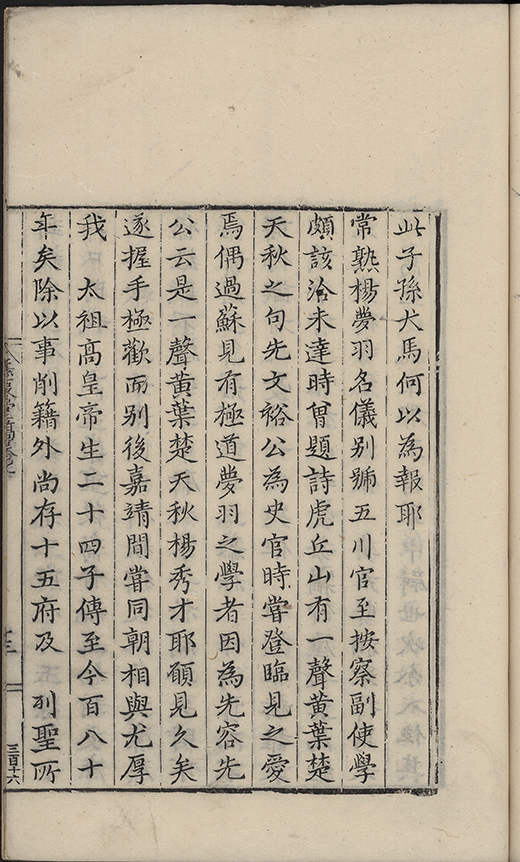 此子孫犬馬何以為報耶
常熟楊夢羽名儀别號五川官至按察副使學
頗該洽未達時曾題詩虎丘山有一聲黃葉楚
天秋之句先文裕公為史官時嘗登臨見之愛
焉偶過蘇見有極道夢羽之學者因為先容先
公云是一聲黃葉楚天秋楊秀才耶願見久矣
遂握手極歡而别後嘉靖間嘗同朝相與尤厚
我　太祖高皇帝生二十四子傳至今百八十
年矣除以事削籍外尚存十五府及　列聖所
十三
三百十六